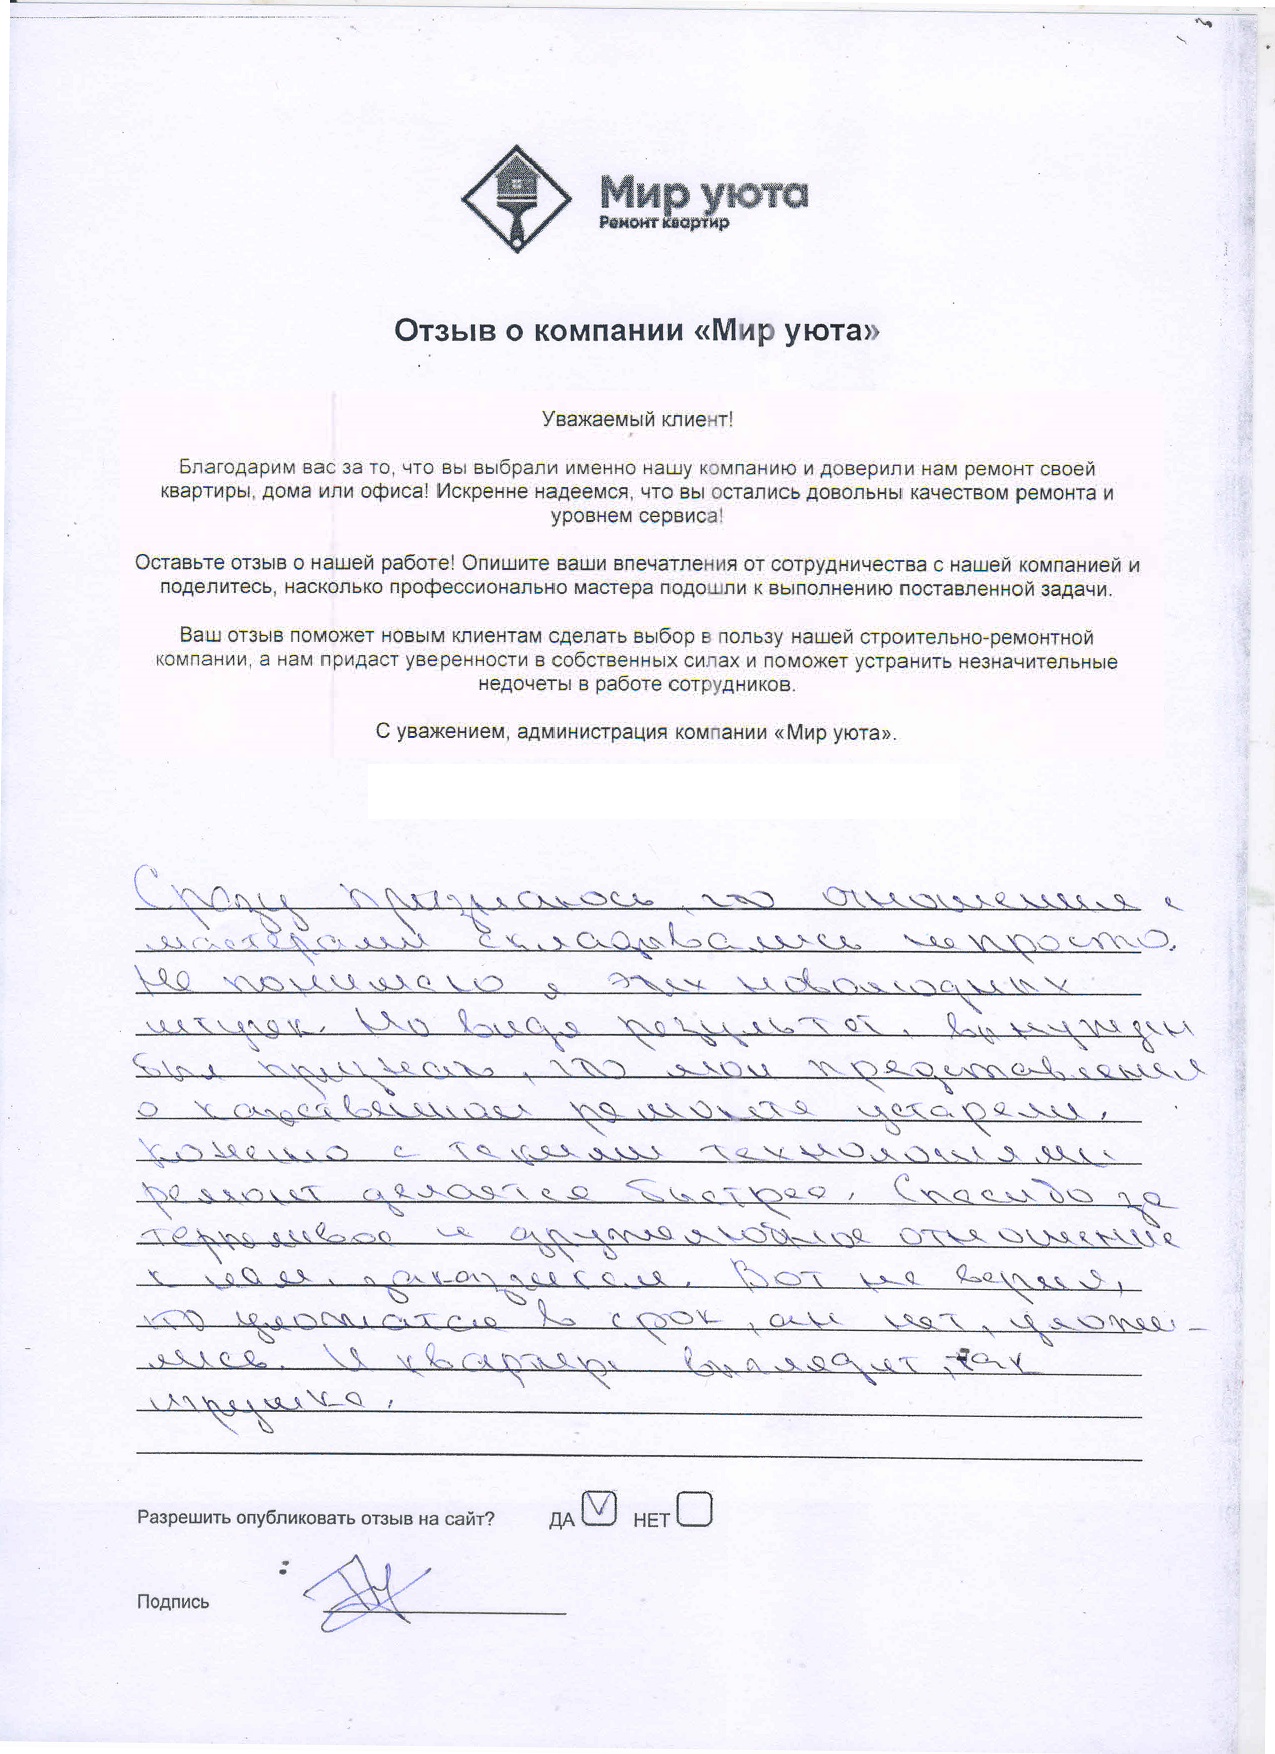 Мир уюта
Ремонт квартир
Отзыв о компании «Мир уюта»
Уважаемый клиент!
Благодарим вас за то, что вы выбрали именно нашу компанию и доверили нам ремонт своей
квартиры, дома или офиса! Искренне надеемся, что вы остались довольны качеством ремонта и
уровнем сервиса!
Оставьте отзыв о нашей работе! Опишите ваши впечатления от сотрудничества с нашей компанией и
поделитесь, насколько профессионально мастера подошли к выполнению поставленной задачи.
Ваш отзыв поможет новым клиентам сделать выбор в пользу нашей строительно-ремонтной
компании, а нам придаст уверенности в собственных силах и поможет устранить незначительные
недочеты в работе сотрудников.
С уважением, администрация компании «Мир уюта».
Сразу признаюсь, что отношения с
мастерами складывались непросто.
Не понимаю я этих новомодных
штучек. Но видя результат, вынужден
был признать, что мои представления
о качественном ремонте устарели,
конечно с такими технологиями
ремонт делается быстрее. Спасибо за
терпеливое и дружелюбное отношение
к нам, заказчикам. Вот не верил,
что уложатся в срок, ан нет, уложи-
лись. И квартира выглядит, как
игрушка.
Разрешить опубликовать отзыв на сайт? ДА НЕТ
Подпись